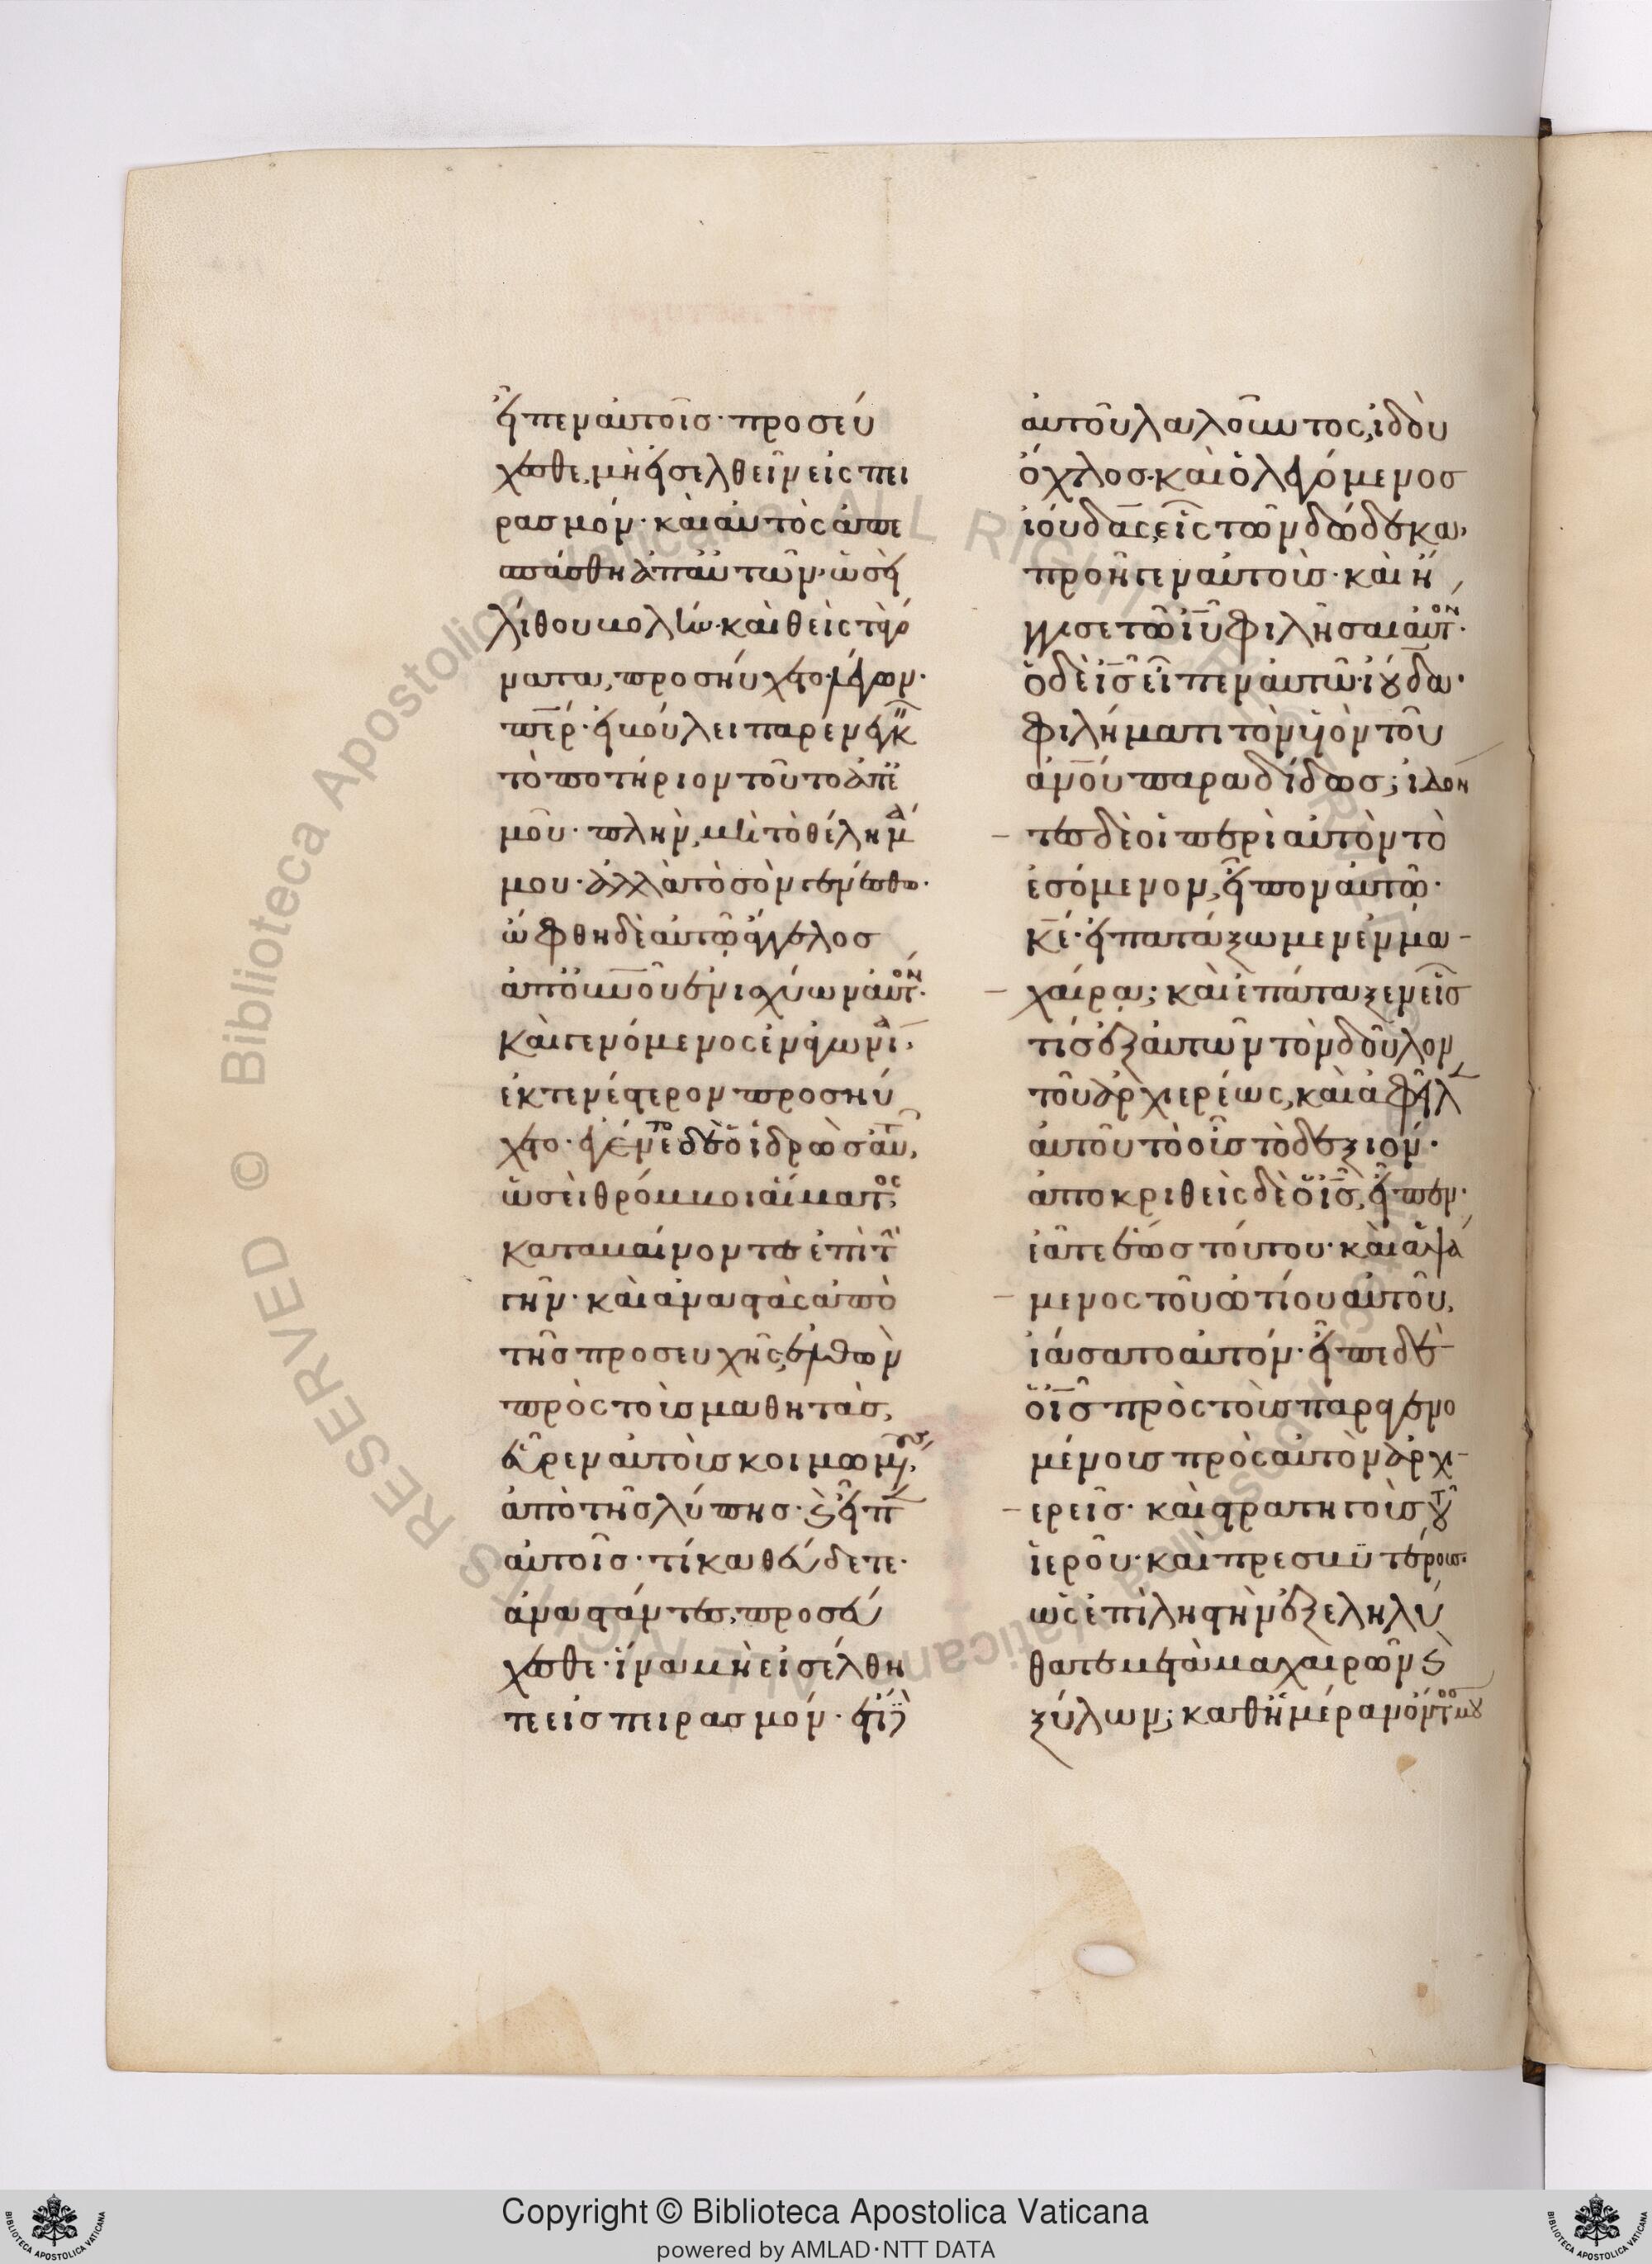 εἶπεν αὐτοῖσ· προσεύ
χεσθε, μὴ εἰσελθεῖν εἰς πει
ρασμόν· καὶ αὐτὸς ἀπε
σπάσθη ἀπ' αὐτῶν· ὡσεὶ
λίθου βολήν· καὶ θεὶς τὰ γό
νατα, προσηύχετο λέγων·
περ· εἰ βούλει παρένεγκ
τὸ ποτήριον τοῦτο ἀπ' ἐ
μοῦ· πλὴν, μὴ τὸ θέλημά
μου· ἀλλὰ τὸ σὸν γενέσθω·
ὤφθη δὲ αὐτῷ ἄγγελος
ἀπὸ οὐνοῦ ἐνισχύων αὐτόν·
καὶ γενόμενος ἐν ἀγωνία,
ἐκτενέστερον προσηύ
χετο· ἐγένετο δὲ ὁ ἱδρὼσ αὐτοῦ,
ὡσεὶ θρόμβοι αἵματος,
καταβαίνοντες ἐπὶ τὴ
γῆν· καὶ ἀναστὰς ἀπὸ
τῆσ προσευχῆς, ἐλθὼν
πρὸς τοὺσ μαθητάσ,
εὗρεν αὐτοὺσ κοιμωμένους,
ἀπὸ τῆσ λύπησ· καὶ εἶπ
αὐτοῖσ· τί καθεύδετε·
ἀναστάντεσ, προσεύ
χεσθε· ἵνα μὴ εἰσέλθη
τε εἰσ πειρασμόν· ἔτι δὲ
αὐτοῦ λαλοῦντος, ἰδοὺ
ὄχλοσ· καὶ ὁ λεγόμενοσ
ἰούδας, εἷς τῶν δώδεκα,
προῆγεν αὐτούσ· καὶ ἤγ
γισε τῶ ἰυ φιλῆσαι αὐτόν·
ὁ δὲ ἰσ εἶπεν αὐτῶ· ἰούδα·
φιλήματι τὸν υἱὸν τοῦ
ἀνου παραδίδωσ; ἰδόν
τεσ δὲ οἱ περὶ αὐτὸν τὸ
ἐσόμενον, εἶπον αὐτῷ·
κε· εἰ πατάξωμεν ἐν μα-
χαίρᾳ; καὶ ἐπάταξεν εἷσ
τίσ ἐξ αὐτῶν τὸν δοῦλον
τοῦ ἀρχιερέως, καὶ ἀφεῖλ
αὐτοῦ τὸ οὖσ τὸ δεξιόν·
ἀποκριθεὶς δὲ ὁ ἰσ, εἶπεν·
ἐᾶτε ἕωσ τούτου· καὶ ἁψά
μενος τοῦ ὠτίου αὐτοῦ,
ἰάσατο αὐτόν· εἶπε δὲ
ὁ ἰσ πρὸς τοὺσ παραγενο
μένουσ πρὸς αὐτὸν ἀρχι-
ερεῖσ· καὶ στρατηγοὺσ τοῦ
ἱεροῦ· καὶ πρεσβυτέρουσ·
ὡς ἐπὶ ληστὴν ἐξεληλύ
θατε μετὰ μαχαιρῶν καὶ
ξύλων; καθ' ἡμέραν ὄντος μου